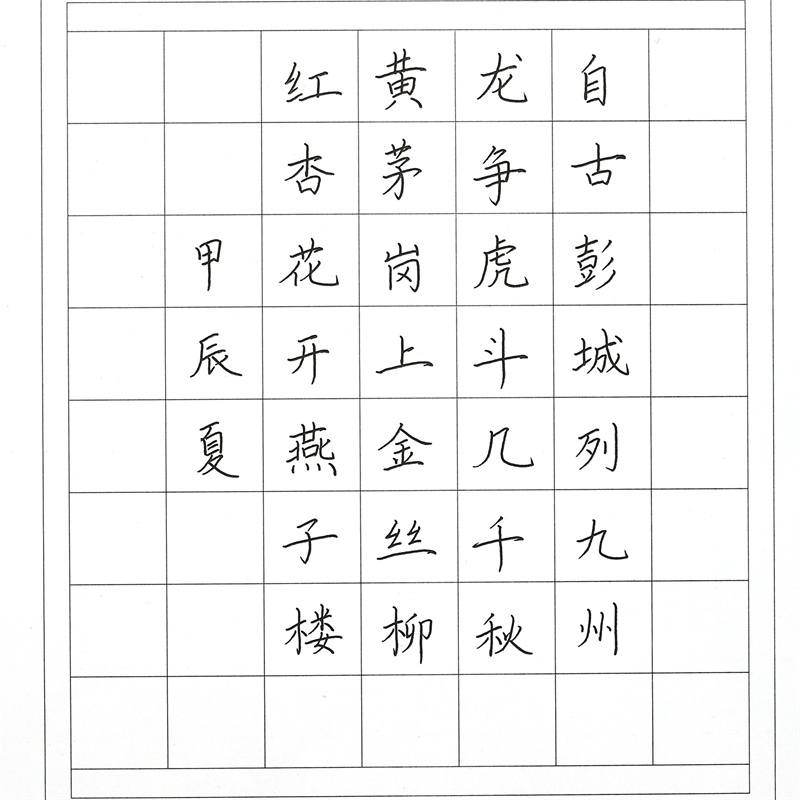 自古彭城列九州
龙争虎斗几千秋
黄茅岗上金丝柳
红杏花开燕子楼
甲辰夏